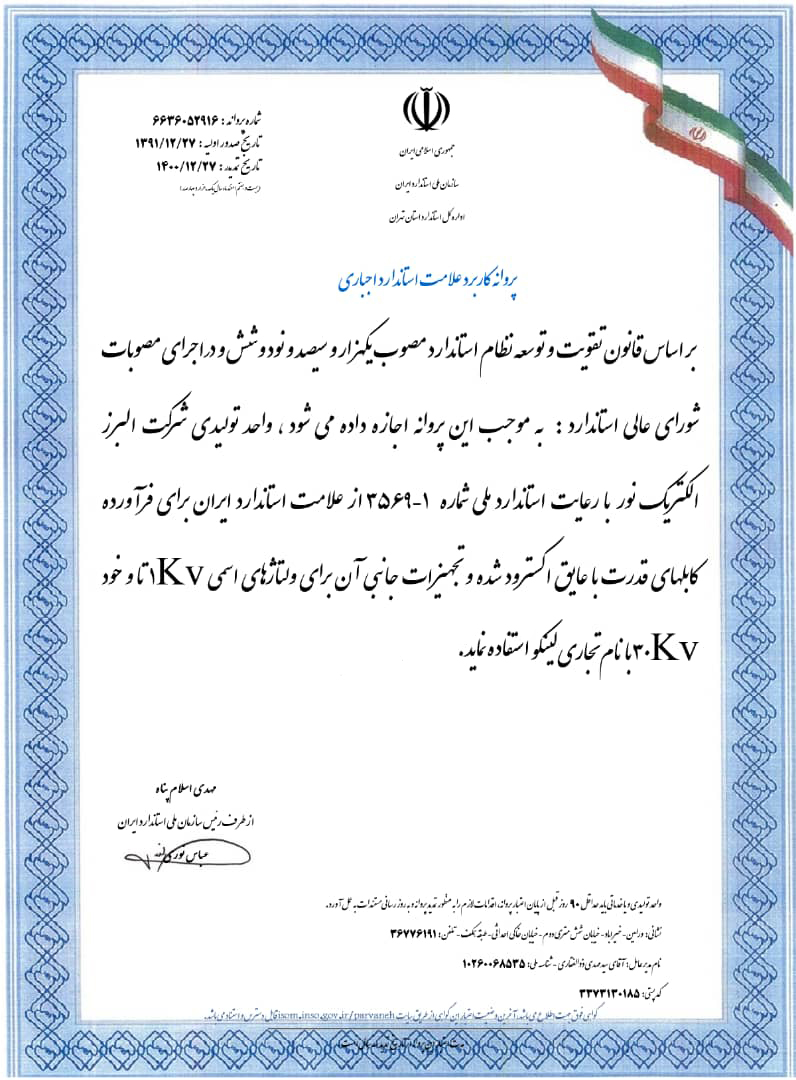 شماره پروانه : ۶۶۳۶۰۵۲۹۱۶
تاریخ صدور اولیه : ۱۳۹۱/۱۲/۲۷
تاریخ تمدید : ۱۴۰۰/۱۲/۲۷
جمهوری اسلامی ایران
سازمان ملی استاندارد ایران
اداره کل استاندارد استان تهران
پروانه کاربرد علامت استاندارد اجباری
بر اساس قانون تقویت و توسعه نظام استاندارد مصوب یکهزار و سیصد و نود و شش و در اجرای مصوبات
شورای عالی استاندارد : به موجب این پروانه اجازه داده می شود ، واحد تولیدی شرکت البرز
الکتریک نور با رعایت استاندارد ملی شماره ۱-۳۵۶۹ از علامت استاندارد ایران برای فرآورده
کابلهای قدرت با عایق اکسترود شده و تجهیزات جانبی آن برای ولتاژهای اسمی ۱Kv تا و خود
۳۰Kv با نام تجاری لینکو استفاده نماید.
مهدی اسلام پناه
از طرف رئیس سازمان ملی استاندارد ایران
عباس نوری
واحد تولیدی و یا خدماتی باید حداقل ۹۰ روز قبل از پایان اعتبار پروانه، اقدامات لازم را به منظور تمدید پروانه و به روز رسانی مستندات به عمل آورد.
نشانی: ورامین - خیرآباد - خیابان شش متری دوم - خیابان خاکی احداثی - طبقه همکف - تلفن: ۳۶۷۷۶۱۹۱
نام مدیرعامل: آقای سیدمهدی ذوالفقاری - شناسه ملی: ۱۰۲۶۰۰۶۸۵۳۵
کد پستی: ۳۳۷۳۱۳۰۱۸۵
گواهی فوق جهت اطلاع می باشد، آخرین وضعیت اعتبار این گواهی از طریق سایت isom.inso.gov.ir/parvaneh قابل دسترس و استناد می باشد.